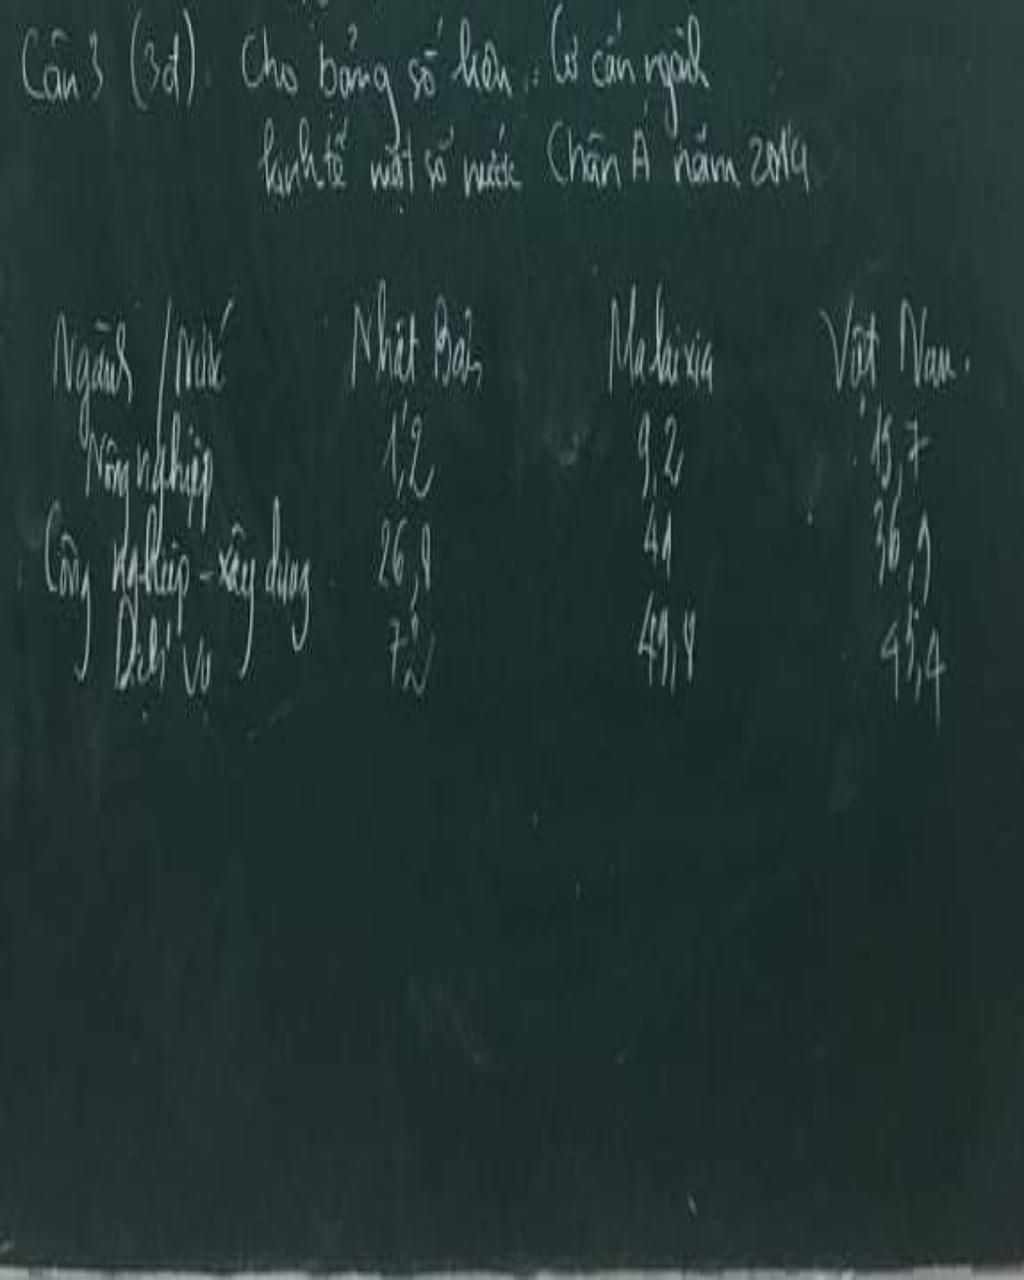 Câu 3 (3đ). Cho bảng số liệu: Cơ cấu ngành
kinh tế một số nước Châu Á năm 2014
Ngành / Nước Nhật Bản Malaixia Việt Nam.
Nông nghiệp 1,2 9,2 7
Công nghiệp - xây dựng 26,8 41 36,9
Dịch vụ 72 49,8 45,4